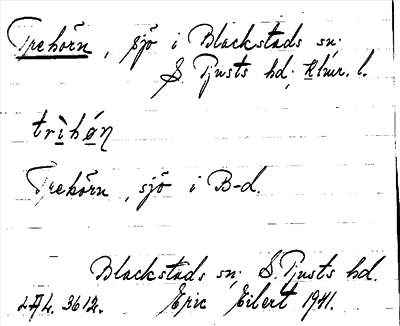 Trehörn, sjö i Blackstads sn;
S. Tjusts hd; Klmr. l.
trìhǿn
Trehörn, sjö i B-d.
Blackstads sn; S. Tjusts hd.
ULA 3612. Eric Eilert 1941.